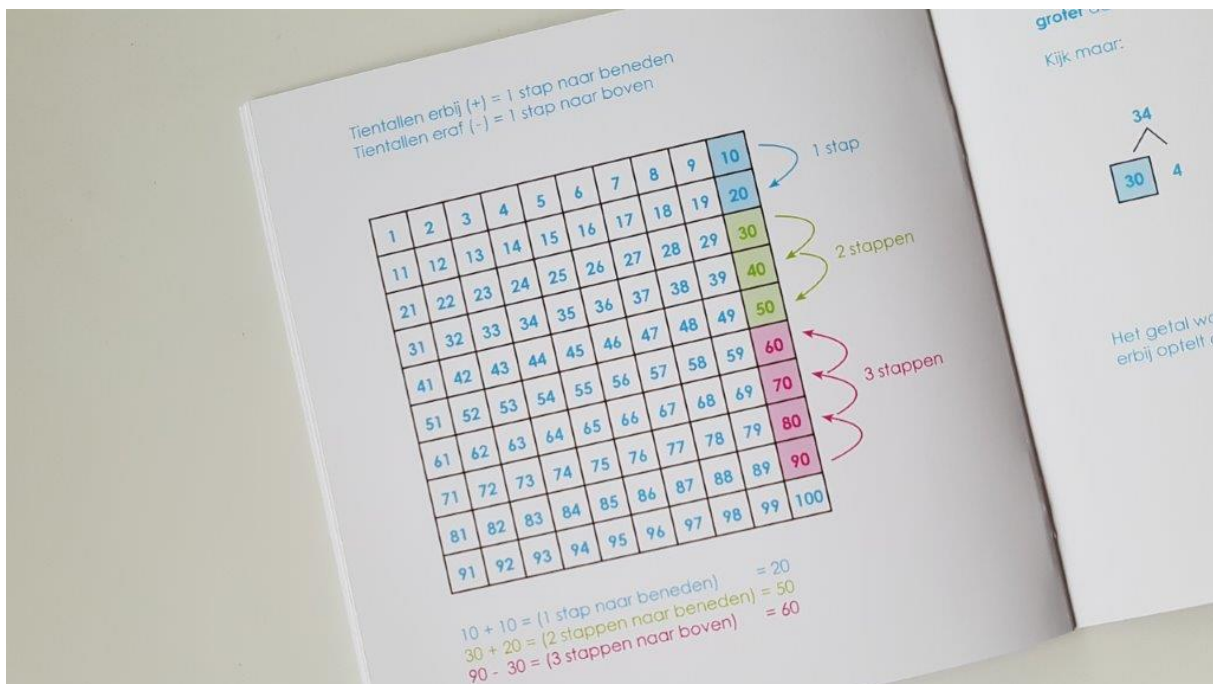 Tientallen erbij (+) = 1 stap naar beneden
Tientallen eraf (-) = 1 stap naar boven
1 2 3 4 5 6 7 8 9 10
11 12 13 14 15 16 17 18 19 20
21 22 23 24 25 26 27 28 29 30
31 32 33 34 35 36 37 38 39 40
41 42 43 44 45 46 47 48 49 50
51 52 53 54 55 56 57 58 59 60
61 62 63 64 65 66 67 68 69 70
71 72 73 74 75 76 77 78 79 80
81 82 83 84 85 86 87 88 89 90
91 92 93 94 95 96 97 98 99 100
1 stap
2 stappen
3 stappen
10 + 10 = (1 stap naar beneden) = 20
30 + 20 = (2 stappen naar beneden) = 50
90 - 30 = (3 stappen naar boven) = 60
groter
Kijk maar:
34
30 4
Het getal
erbij optelt